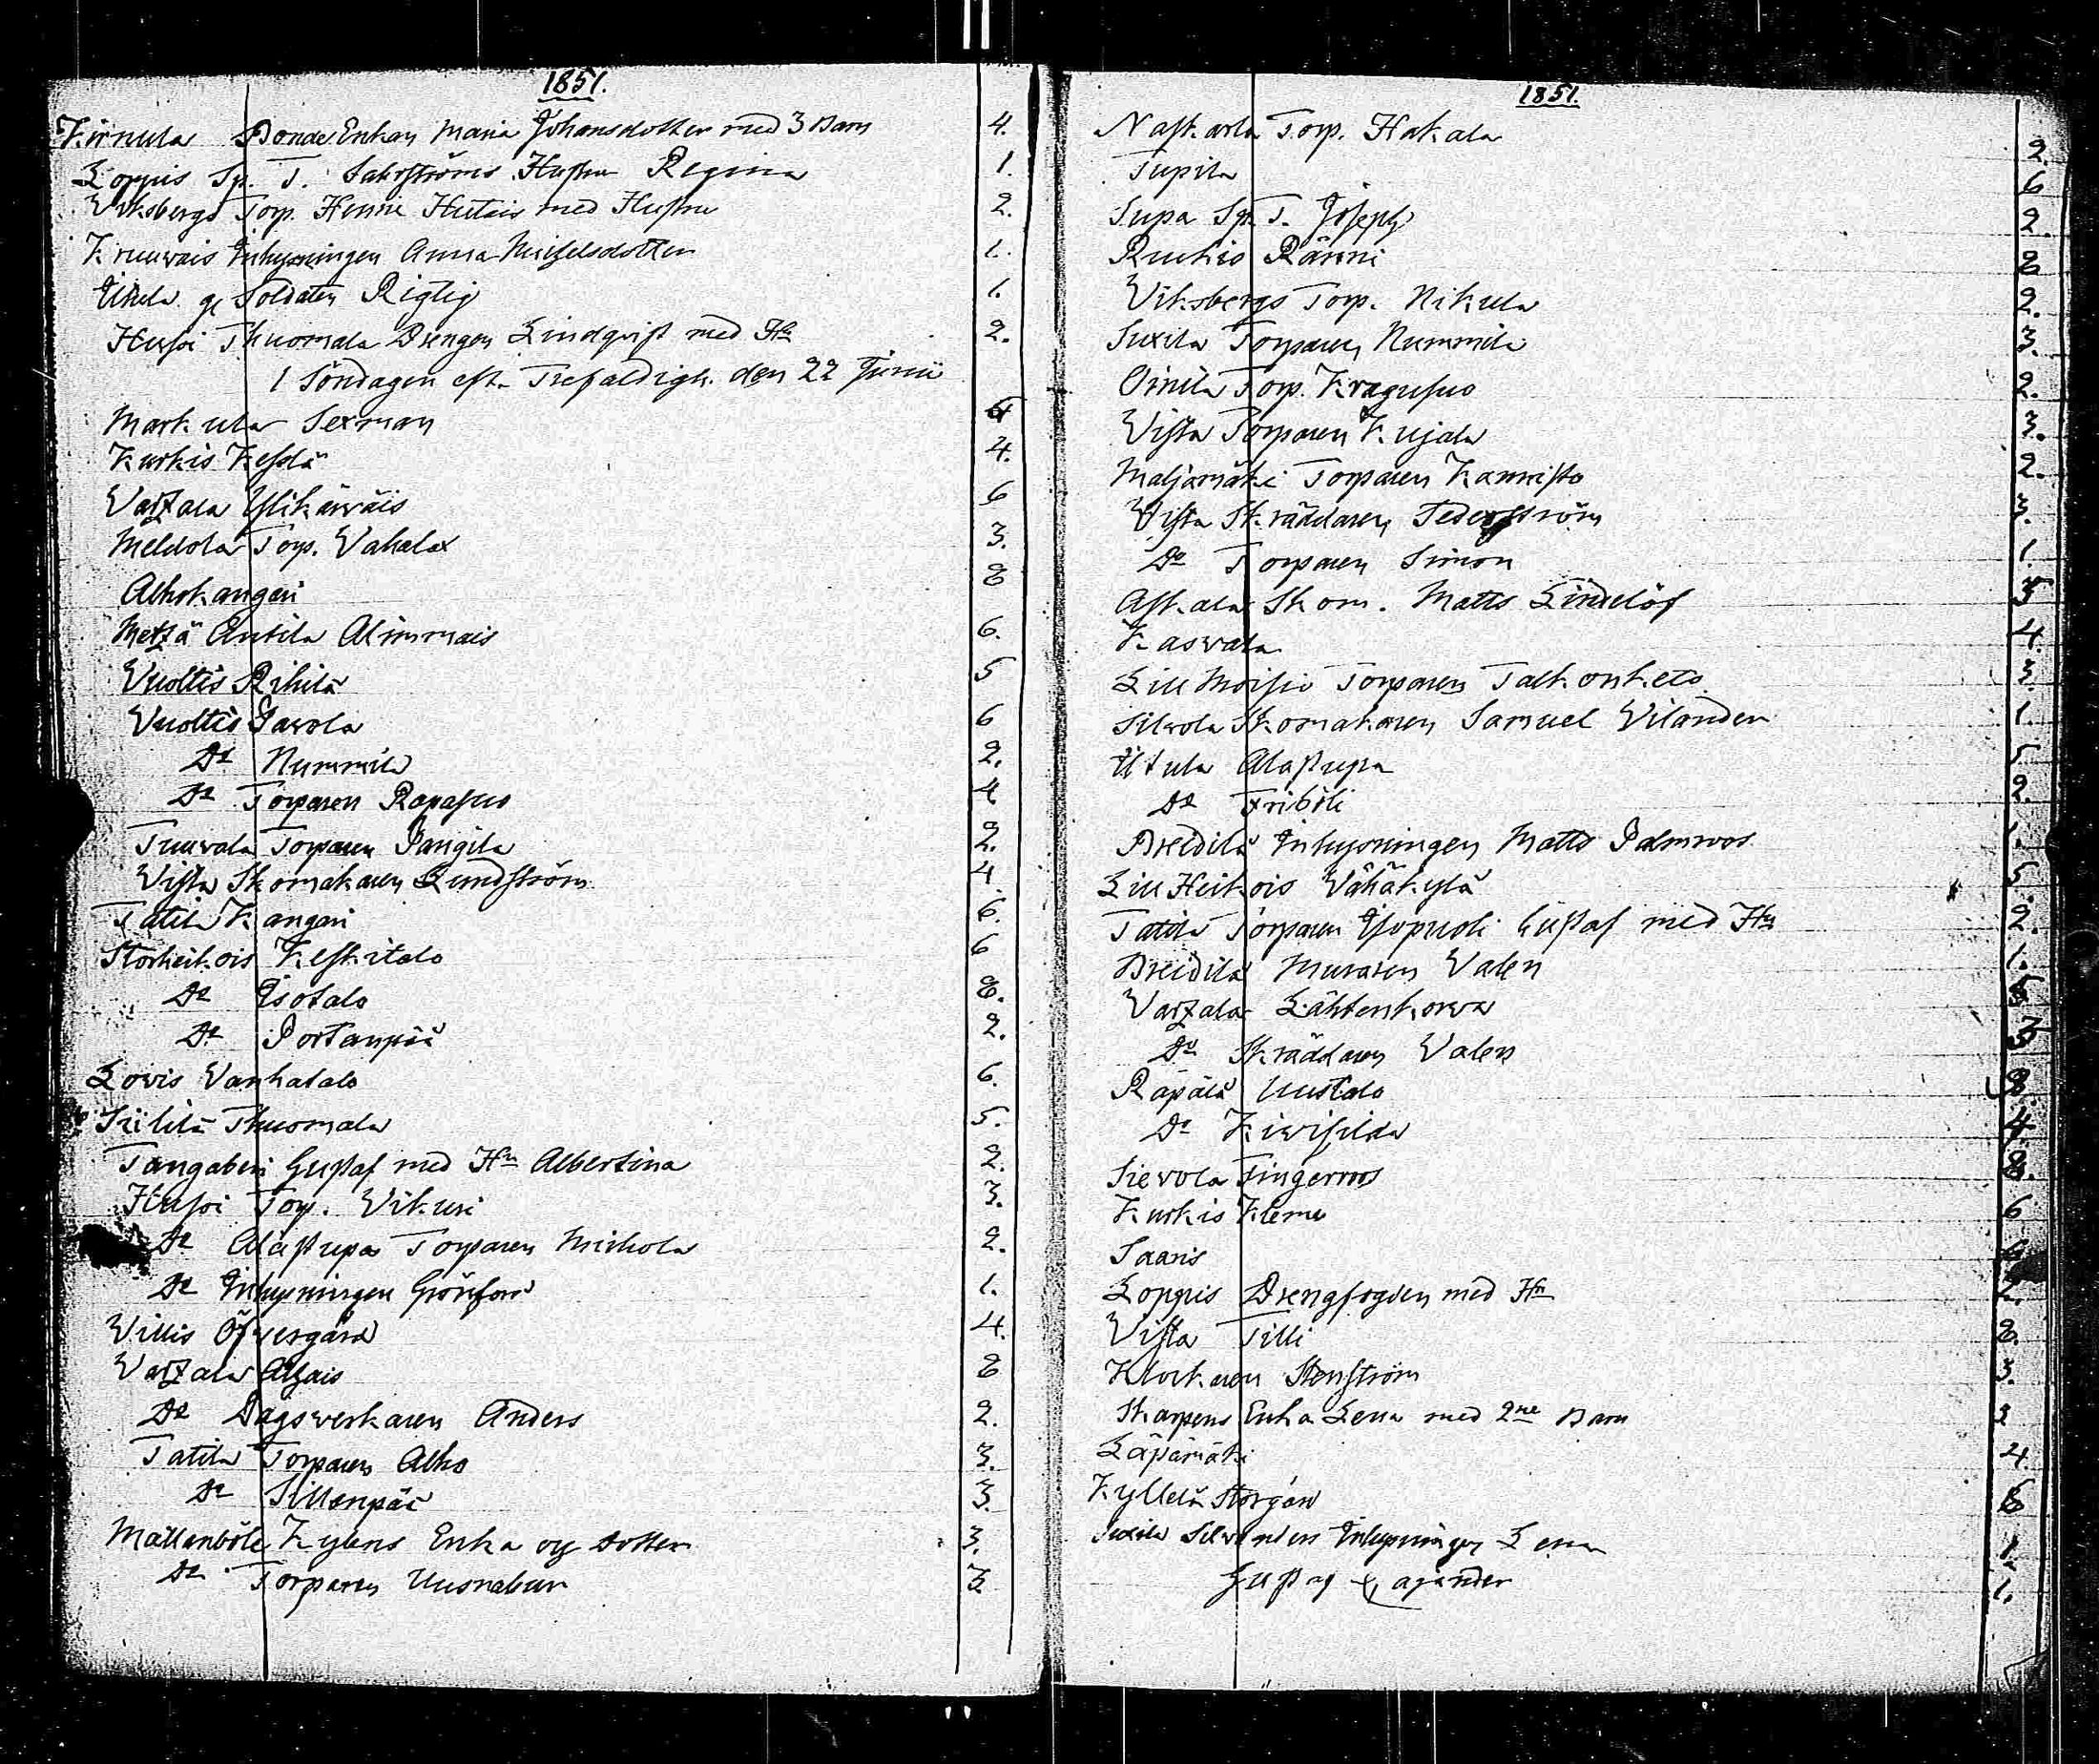 1851.
Kirnula Bonde Enkan Maria Johansdotter med 3 Barn 4.
Loppis Sp. T. Sahrströms Hustru Regina 1.
Viksbergs Torp. Henric Hutais med Hustru 2.
Kruuvais Inhysningen Anna Michelsdotter 1.
Ukula Soldaten Rigtig 1.
Huhoi Thuomala Drengen Lindqvist med Hu 2.
1 Söndagen eft. Trefaldigh. den 22 Junii
Markula Sexman
Kurkis Kesslä 4.
Vartzala Ylikärväis 6
Meldola Torp. Vahalax 3.
Alhokangari 8
Metzä Antila Alimmais 6.
Vuoltis Rihilä 5
Vuoltis Pavola 6
Do Nummila 2.
Do Torparen Ropasuo 4
Tuuvala Torparen Pangila 2.
Vista Skomakaren Lundström 4.
Tatila Kangari 6.
Storheikois Keskitalo 6
Do Isotalo 8.
Do Portanpää 2.
Lovis Vanhatalo 6.
Thuomala 5.
Tangaberi Gustaf med Hu Albertina 2.
Huhoi Torp. Vikuri 3.
Do Alastupa Torparen Mickola 2.
Do Inhysningen Grönfors 1.
Villis Öfvergård 4.
Vartzala Alhais 8
Do Dagsverkaren Anders 2.
Tatila Torparen Alho 3.
Do Sillanpää 3.
Mattanböle Kylens Enka og dotter 3.
Do Torparen Uusnaburi 3
1851.
Naskarla Torp. Hakala 2.
Tupila 6
Supa Sp. T. Joseph 2.
Ruukis Ränni 8
Viksbergs Torp. Nikula 2.
Suxila Torparen Nummila 3.
Oinila Torp. Kragusuo 2.
Vista Torparen Kujala 3.
Maljamäki Torparen Kannisto 2.
Vista Skräddaren Federström 3.
Do Torparen Simon 1.
Askala Skom. Matts Lindelöf 3
Kasvala 4.
Lill Moisio Torparen Talkonketo 3.
Silvola Skomakaren Samuel Vilander 1.
Utula Alastupa 5
Do Friböli 2.
Breidila Inhysningen Matts Palmroos 1.
Lill Heikois Vähäkylä 5.
Tatila Torparen Isopuoli Gustaf med Hu 2.
Breidila Muraren Valen 1.
Vartzala Lähtenkorva
Do Skräddaren Valen 3
Räpälä Uustalo 8.
Do Kivisilda 4.
Sievola Fingerroos 8.
Kurkis Klemu 6
Saaris
Loppis Drengfogden med Hu 2.
Vista Tilli 8.
Klockaren Stenström 3.
Skarpens Enka Lena med 2ne Barn 3
Läpämäki 4
Kyllelä Storgård
Suxila Inhysningen Lena 1.
Gustaf 1.